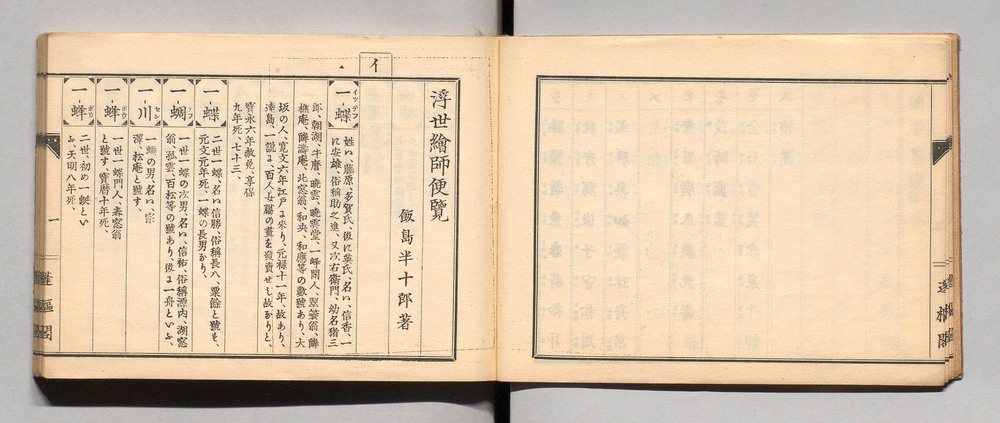 浮世繪師便覽
飯島半十郎著
イ
一蝶 イツテフ
姓ハ、藤原、多賀氏、後に英氏、名ハ、信香、一
に安雄、俗稱助之進、又次右衛門、幼名猪三
郎、朝湖、牛麿、曉雲、曉雲堂、一峰閑人、翠簑翁、隣
樵庵、隣濤庵、北窓翁、和央、和應等の數號あり、大
坂の人、寛文六年江戸に來り、元禄十一年、故あり、
湊島、一説に、百人女臈の畫を發賣せし故なりと、
寶永六年赦免、享保
九年死、七十三、
一蝶
二世一蝶、名ハ信勝、俗稱長八、栗餘と號も、
元文元年死、一蝶の長男なり、
一蜩
一世一蝶の次男、名ハ、信祐、俗稱源内、湖窓
翁、孤雲、百松等の號あり、後に一舟といふ、
一川 セン
一蜩の男、名ハ、宗
澤、松庵と號す、
一蜂 ボウ
一世一蝶門人、春窓翁
と號す、寶暦十年死、
一蜂 ボウ
二世、初め一挺とい
ふ、天明八年死、
一